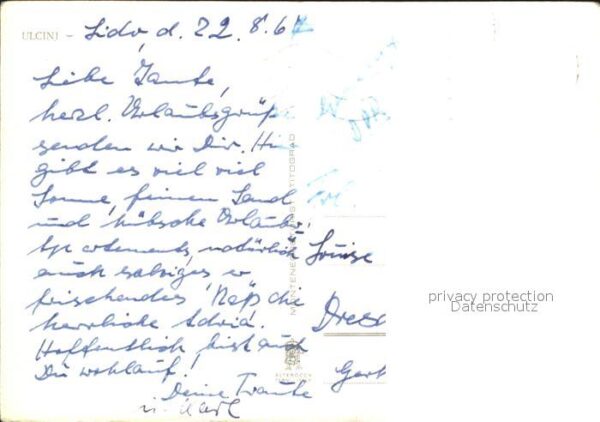 ULCINJ – Lido, d. 22. 8. 67
Liebe Tante,
herzl. Urlaubsgrüße
senden wir Dir. Hier
gibt es viel viel
Sonne, feinen Sand
und hübsche Urlaubs-
appartements, natürlich
auch salziges er
frischendes Naß die
herrliche Adria.
Hoffentlich bist auch
Du wohlauf!
Deine Traute
u. Karl
Frl.
Louise
Dresd
Gerh
TITOGRAD
privacy protection
Datenschutz